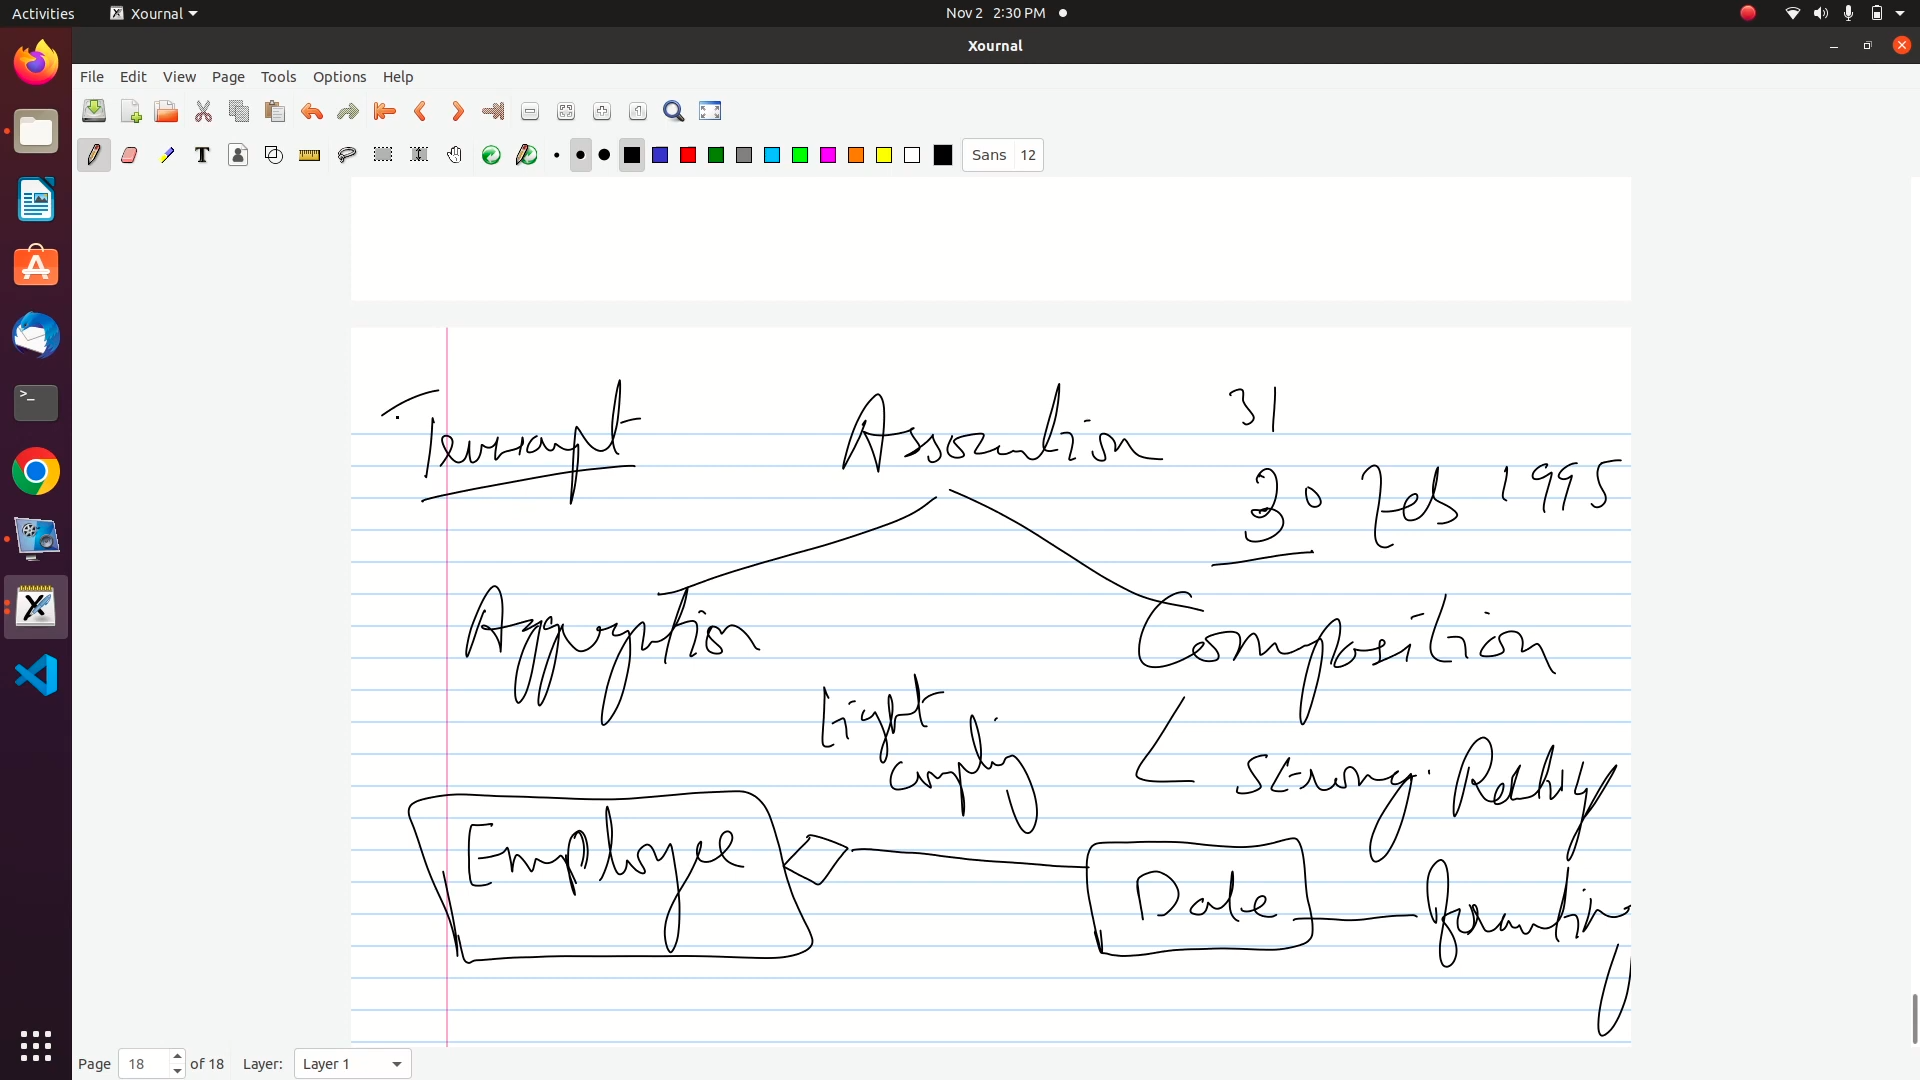 Activities Xournal Nov 2 2:30 PM
Xournal
File Edit View Page Tools Options Help
Sans 12
Association 31
30 Feb 1995
Aggregation Composition
Light
Strong.
Employee
Date
Page 18 of 18 Layer: Layer 1